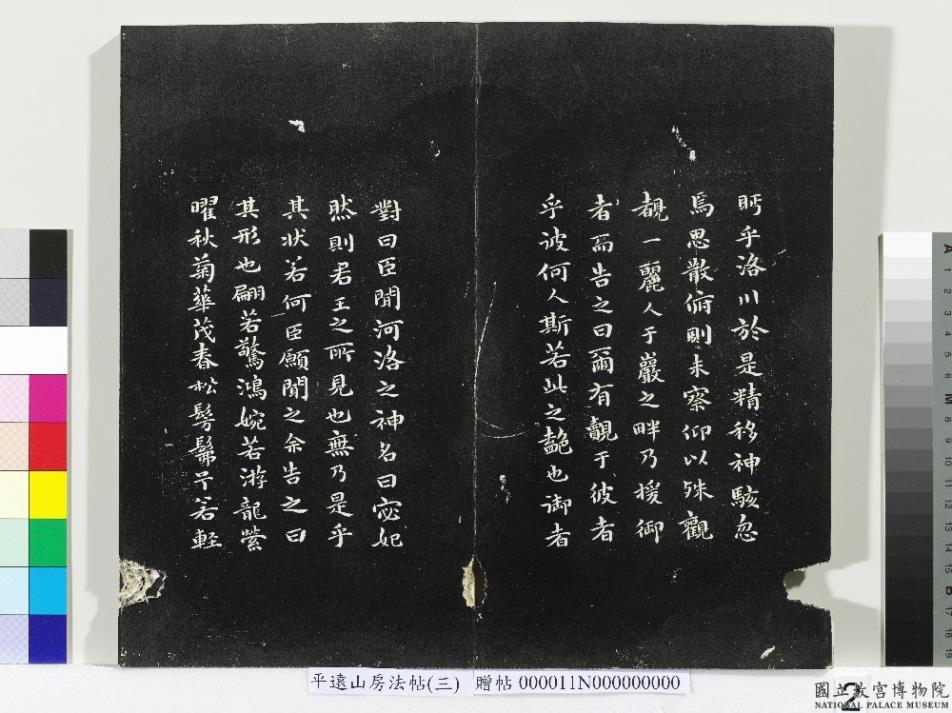 眄乎洛川於是精移神駭忽
焉思散俯則未察仰以殊觀
覩一麗人于巖之畔乃援御
者而告之曰爾有觀于彼者
乎彼何人斯若此之艶也御者
對曰臣聞河洛之神名曰宓妃
然則君王之所見也無乃是乎
其狀若何臣願聞之余告之曰
其形也翩若驚鴻婉若游龍榮
曜秋菊華茂春松髣髴兮若輕
平遠山房法帖(三) 贈帖 000011N000000000
2
國立故宮博物院
NATIONAL PALACE MUSEUM
A 1 2 3 4 5 6 M 8 9 10 11 12 13 14 15 B 17 18 19